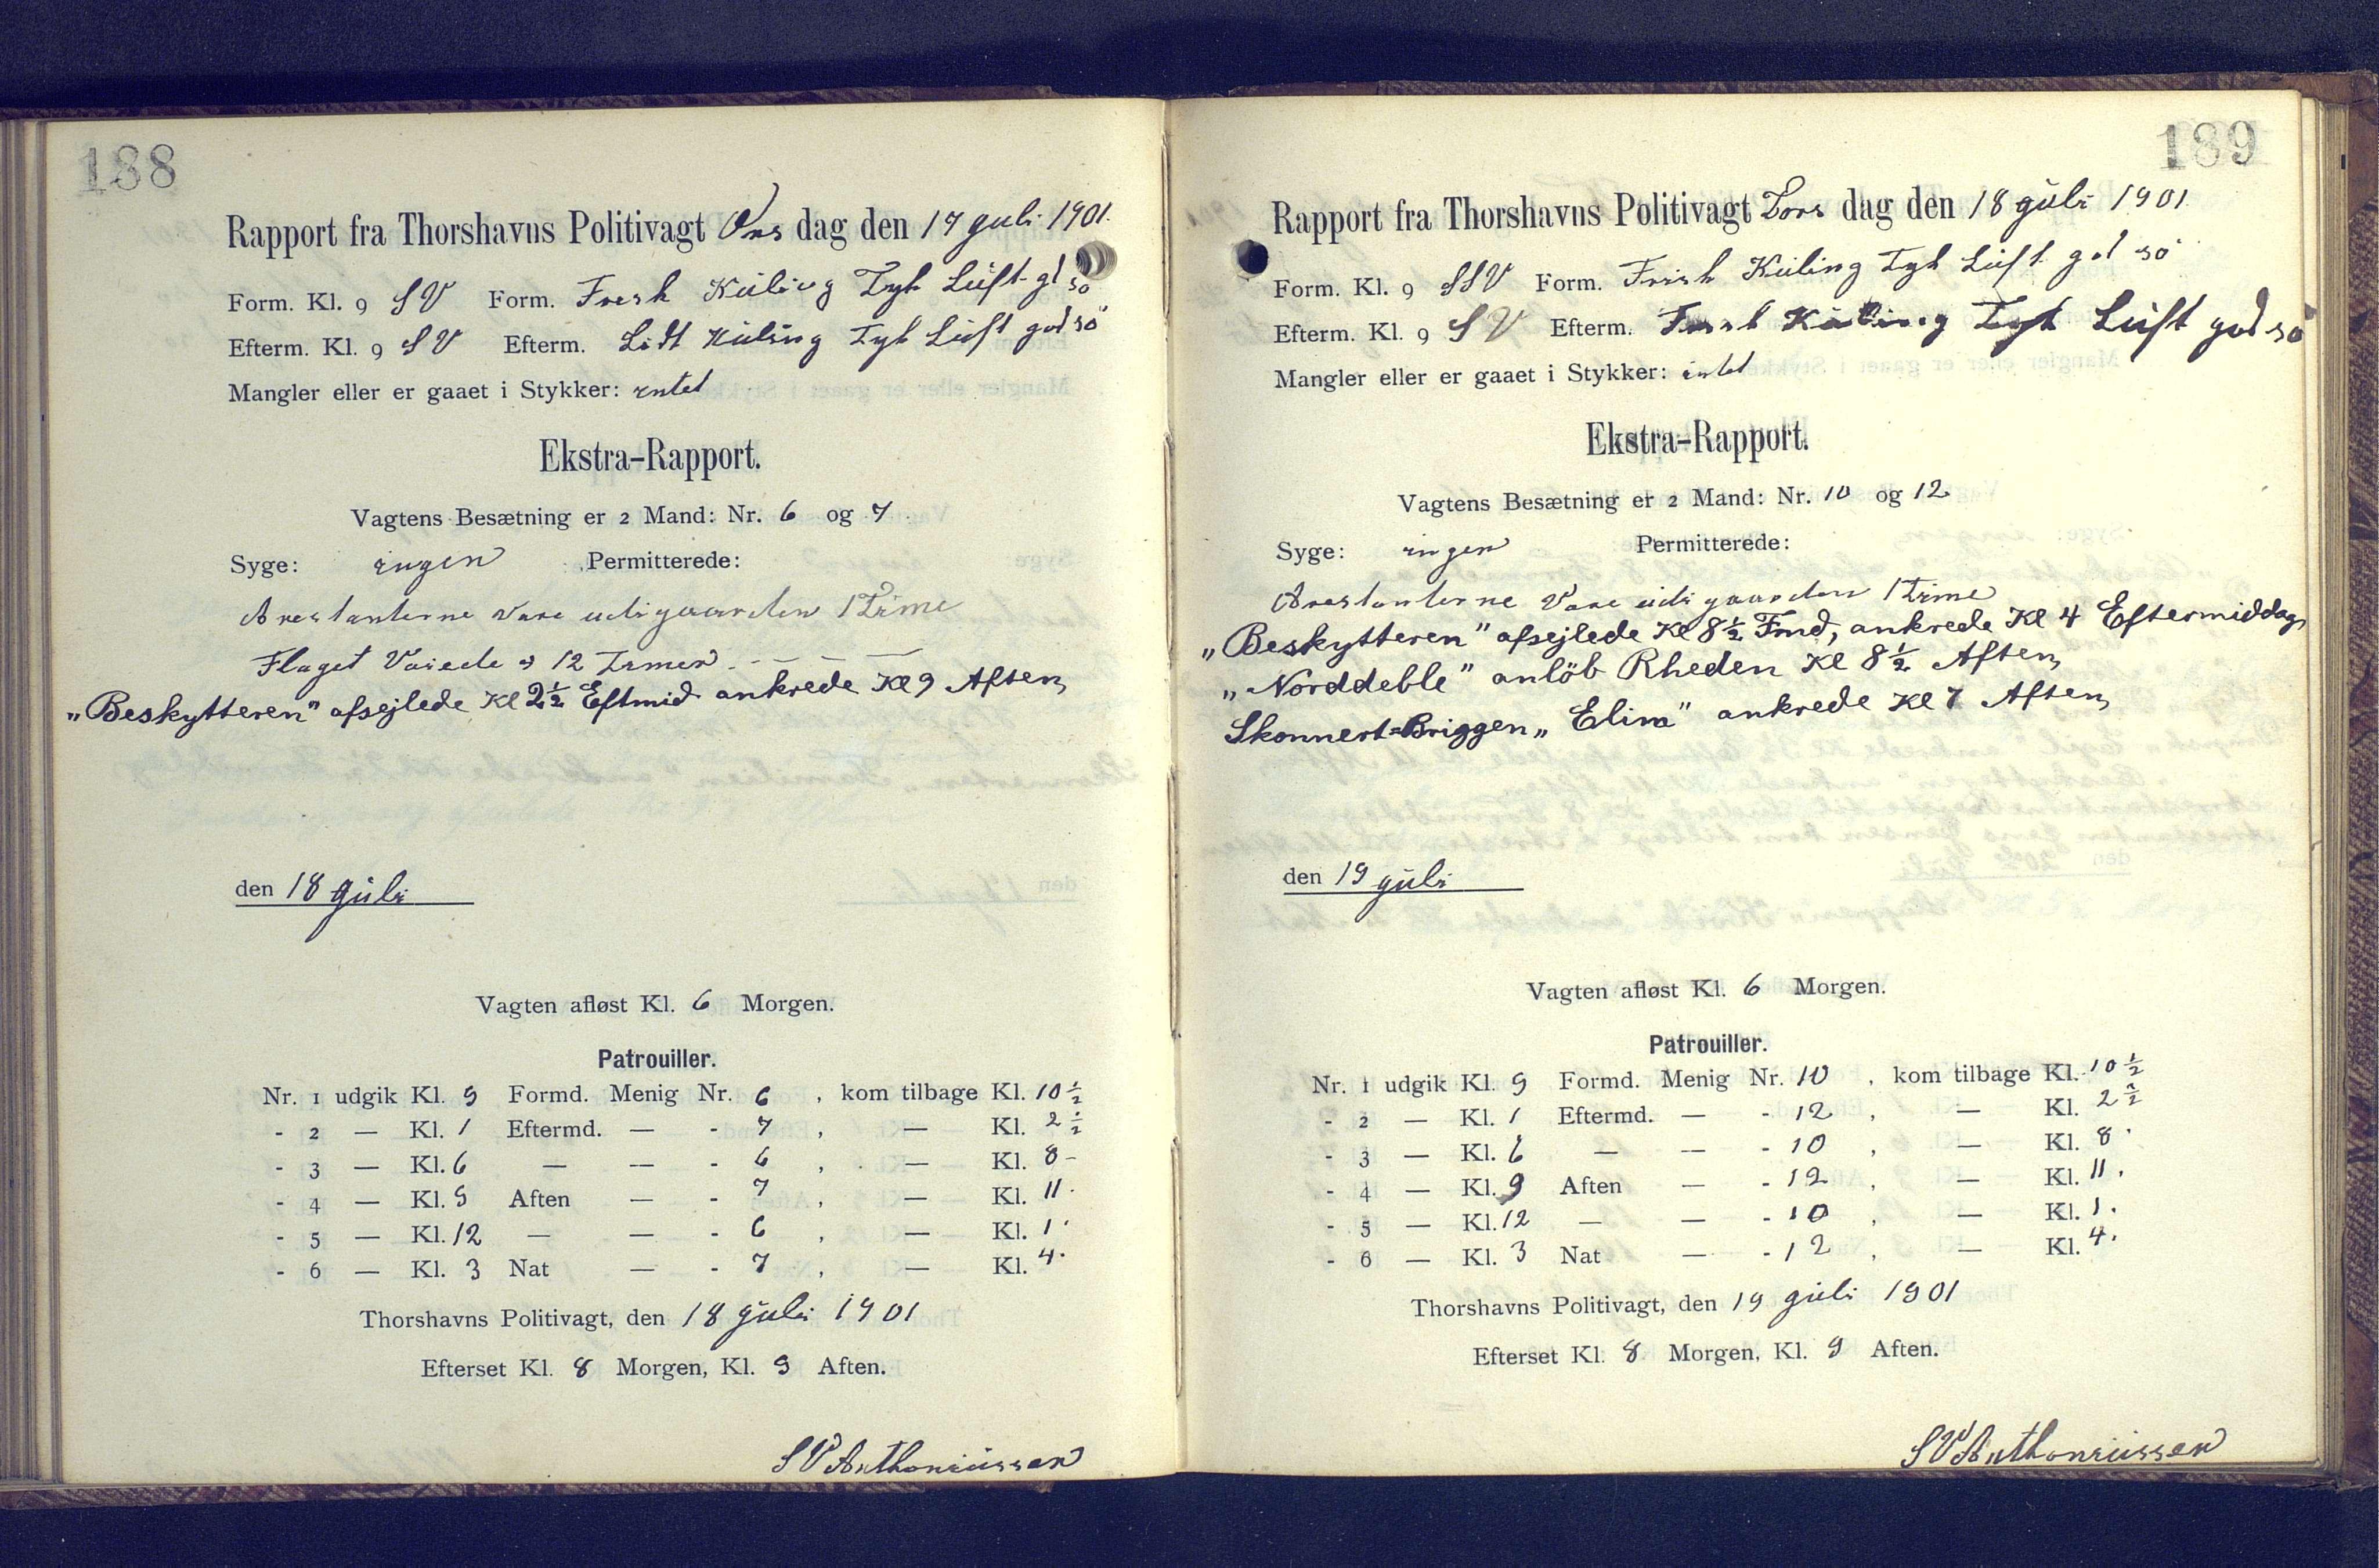 188
Rapport fra Thorshavns Politivagt Ons dag den 17 juli 1901.
Form. Kl. 9 SV Form. Fresk Kuling Tyk Luft gd sö
Efterm. Kl. 9 SV Efterm. Lidt Kuling Tyk Luft god sö
Mangler eller er gaaet i Stykker: intet
Ekstra-Rapport.
Vagtens Besætning er 2 Mand: Nr. 6 og 7
Syge: ingen Permitterede:
Arestanterne vare udi gaarden 1 Time
Flaget Vaiede i 12 Timer
„Beskytteren" afsejlede Kl 2½ Eftmid ankrede Kl 9 Aften
den 18 juli
Vagten afløst Kl. 6 Morgen.
Patrouiller.
Nr. 1 udgik Kl. 9 Formd. Menig Nr. 6 , kom tilbage Kl. 10½
- 2 — Kl. 1 Eftermd. — - 7 , — Kl. 2½
- 3 — Kl. 6 — — - 6 , — Kl. 8 -
- 4 — Kl. 9 Aften — - 7 , — Kl. 11.
- 5 — Kl. 12 — — - 6 , — Kl. 1.
- 6 — Kl. 3 Nat — - 7 , — Kl. 4.
Thorshavns Politivagt, den 18 juli 1901
Efterset Kl. 8 Morgen, Kl. 9 Aften.
SV Anthoniussen
189
Rapport fra Thorshavns Politivagt Tors dag den 18 juli 1901.
Form. Kl. 9 SSV Form. Frisk Kuling Tyk Luft god sö
Efterm. Kl. 9 SV Efterm. Frisk Kuling Tyk Luft god sö
Mangler eller er gaaet i Stykker: intet
Ekstra-Rapport.
Vagtens Besætning er 2 Mand: Nr. 10 og 12
Syge: ingen Permitterede:
Arestanterne Vare udi gaarden 1 Time
„Beskytteren" afsejlede Kl 8½ Fmd, ankrede Kl 4 Eftermiddag
„Norddeble" anlöb Rheden Kl 8½ Aften
Skonnert=Briggen „Elina" ankrede Kl 7 Aften
den 19 juli
Vagten afløst Kl. 6 Morgen.
Patrouiller.
Nr. 1 udgik Kl. 9 Formd. Menig Nr. 10 , kom tilbage Kl. 10½
- 2 — Kl. 1 Eftermd. — - 12 , — Kl. 2½
- 3 — Kl. 6 — — - 10 , — Kl. 8.
- 4 — Kl. 9 Aften — - 12 , — Kl. 11.
- 5 — Kl. 12 — — - 10 , — Kl. 1.
- 6 — Kl. 3 Nat — - 12 , — Kl. 4.
Thorshavns Politivagt, den 19 juli 1901
Efterset Kl. 8 Morgen, Kl. 9 Aften.
SV Anthoniussen